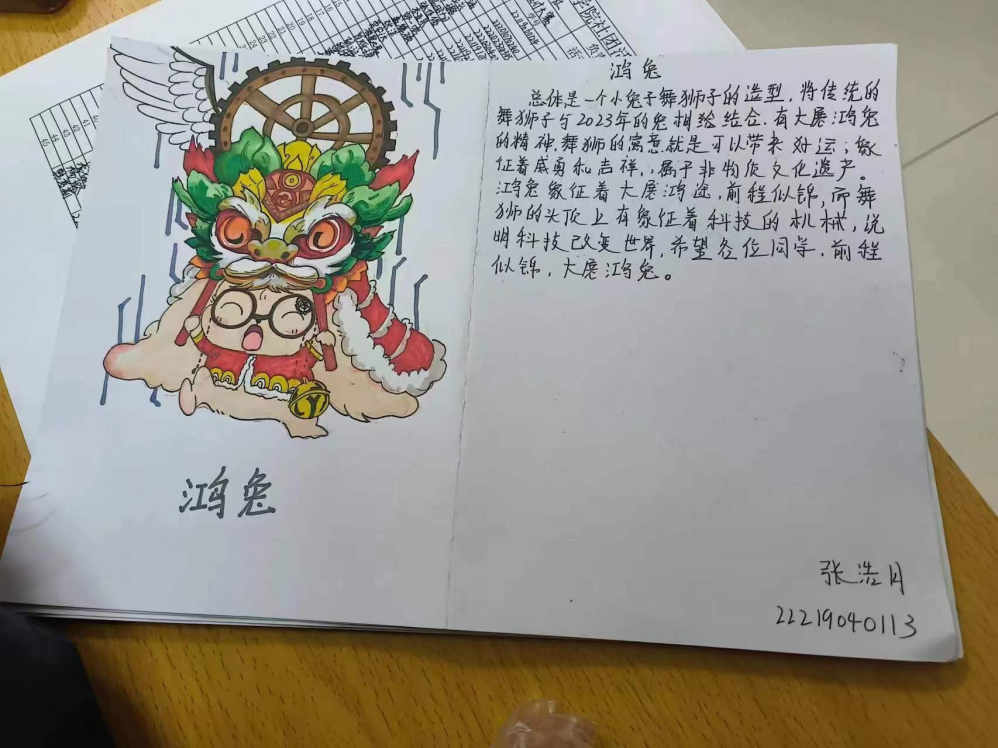 鸿兔
鸿兔
总体是一个小兔子舞狮子的造型，将传统的
舞狮子与2023年的兔相绘结合。有大展鸿兔
的精神。舞狮的寓意就是可以带来好运；象
征着威勇和吉祥，，属于非物质文化遗产。
鸿兔象征着大展鸿途，前程似锦，而舞
狮的头顶上有象征着科技的机械，说
明科技改变世界，希望各位同学，前程
似锦，大展鸿兔。
张浩月
22219040113